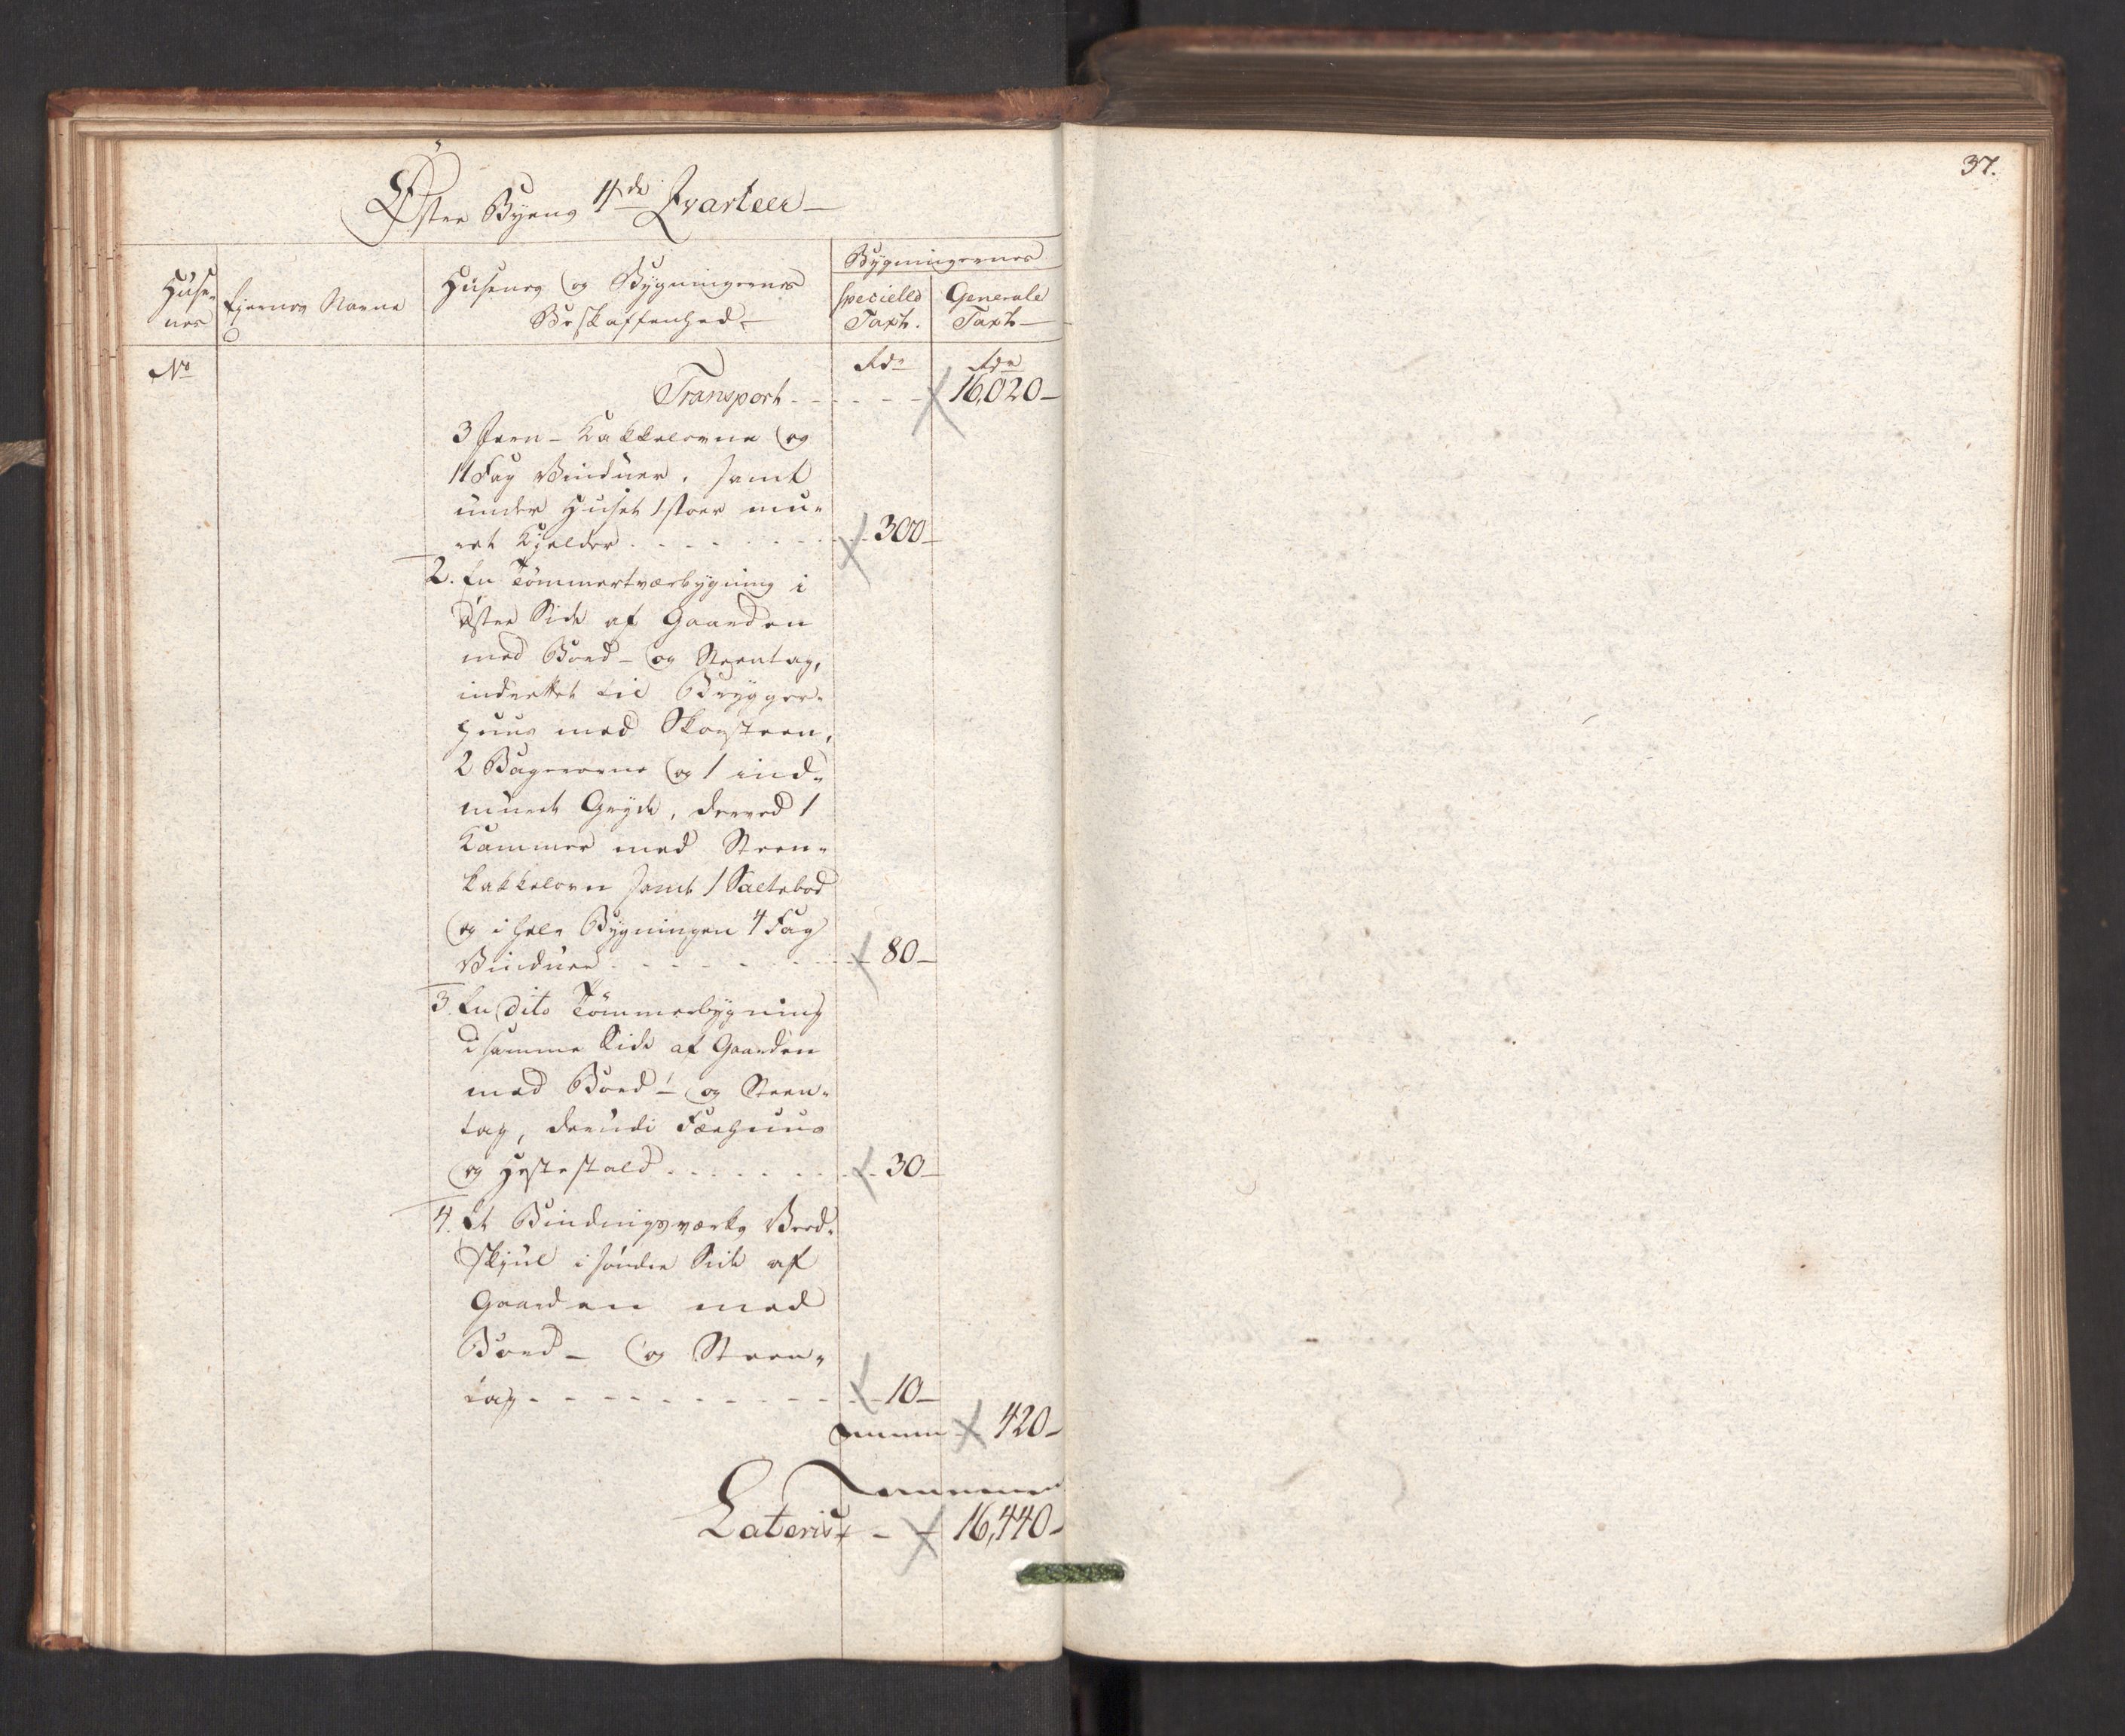 37.
Østre Byens 4de Qvarteer
Huse-
nes
Eiernes Navne
Husenes og Bygningernes
Beskaffenhed
Bygningernes
specielle
Taxt.
Generale
Taxt
No
Rdr
Rdr
Transport - - - - - 16,020-
3 Jern-Kakkelovne og
11 Fag Vinduer, samt
under Huset 1 stoer mu-
ret Kjelder - - - - - 300-
2. En Tømmertværbygning i
Østre Side af Gaarden
med Bord- og Steentag,
indrettet til Brygger-
huus med Skorsteen,
2 Bagerovne og 1 ind-
muret Gryde, derved 1
Kammer med Steen-
kakkelovn samt 1 Saltebod
og i hele Bygningen 4 Fag
Vinduer - - - - - 80-
3. En dito Tømmerbygning
i samme Side af Gaarden
med Bord- og Steen-
tag, derudi Fæehuus
og Hestestald - - - - - 30-
4. Et Bindingsværks Veed-
skjul i søndre Side af
Gaarden med
Bord- og Steen-
tag - - - - - 10-
420-
Lateris - - 16,440-